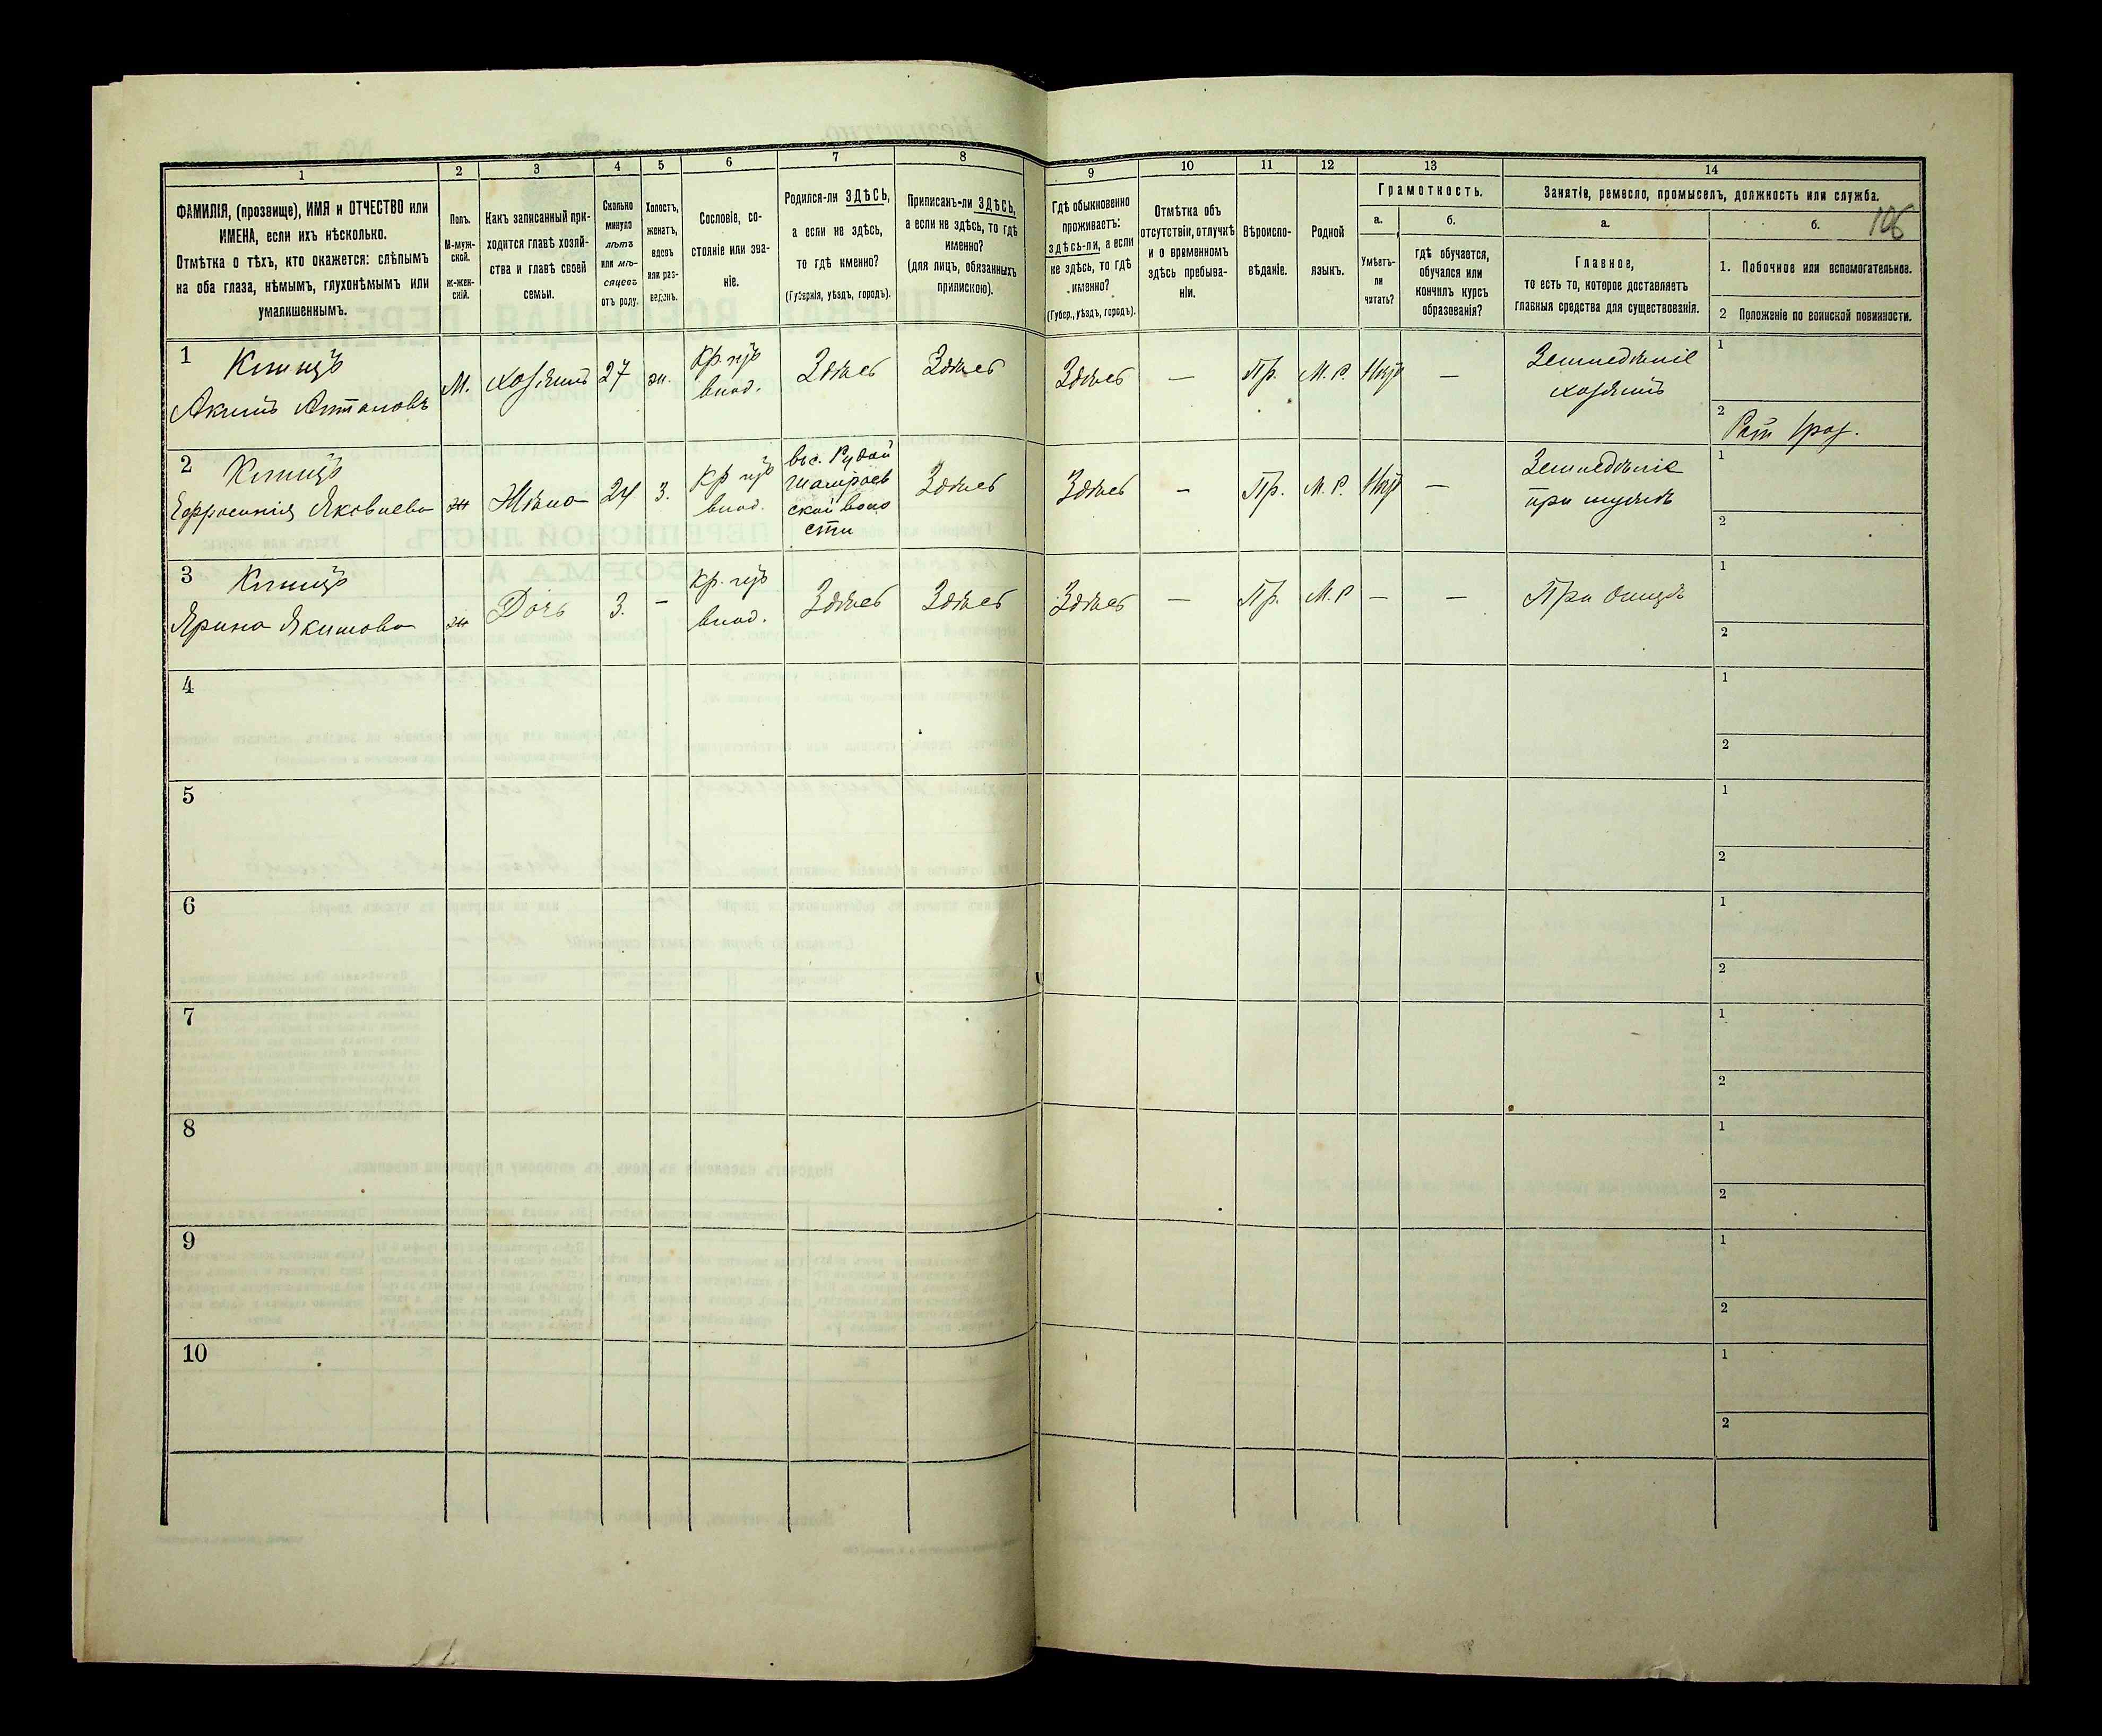 1
2
3
4
5
6
7
8
9
10
11
12
13
14
ФАМИЛІЯ, (прозвище), ИМЯ и ОТЧЕСТВО или
ИМЕНА, если ихъ нѣсколько.
Отмѣтка о тѣхъ, кто окажется: слѣпымъ
на оба глаза, нѣмымъ, глухонѣмымъ или
умалишеннымъ.
Полъ.
М-муж-
ской.
ж-жен-
скій.
Какъ записанный при-
ходится главѣ хозяй-
ства и главѣ своей
семьи.
Сколько
минуло
лѣтъ
или мѣ-
сяцевъ
отъ роду.
Холостъ,
женатъ,
вдовъ
или раз-
веденъ.
Сословіе, со-
стояніе или зва-
ніе.
Родился-ли ЗДѢСЬ,
а если не здѣсь,
то гдѣ именно?
(Губернія, уѣздъ, городъ).
Приписанъ-ли ЗДѢСЬ,
а если не здѣсь, то гдѣ
именно?
(для лицъ, обязанныхъ
припискою).
Гдѣ обыкновенно
проживаетъ:
здѣсь-ли, а если
не здѣсь, то гдѣ
именно?
(Губер., уѣздъ, городъ).
Отмѣтка объ
отсутствіи, отлучкѣ
и о временномъ
здѣсь пребыва-
ніи.
Вѣроиспо-
вѣданіе.
Родной
языкъ.
Грамотность.
а.
б.
Умѣетъ-
ли
читать?
Гдѣ обучается,
обучался или
кончилъ курсъ
образованія?
Занятіе, ремесло, промыселъ, должность или служба.
а.
б.
106
Главное,
то есть то, которое доставляетъ
главныя средства для существованія.
1. Побочное или вспомогательное.
2 Положеніе по воинской повинности.
1
Акимъ Антоновъ
М.
хозяинъ
27
жн.
Здѣсь
Здѣсь
Здѣсь
—
Пр.
М. Р.
—
Земледѣліе
хозяинъ
1
2
2
Ефросинія Яковлева
ж
Жѣна
24
З.
Здѣсь
Здѣсь
—
Пр.
М. Р.
—
Земледѣліе
при мужѣ
1
2
3
Ярина Якимова
ж
Дочь
3.
—
Здѣсь
Здѣсь
Здѣсь
—
Пр.
М. Р
—
—
При отцѣ
1
2
4
1
2
5
1
2
6
1
2
7
1
2
8
1
2
9
1
2
10
1
2